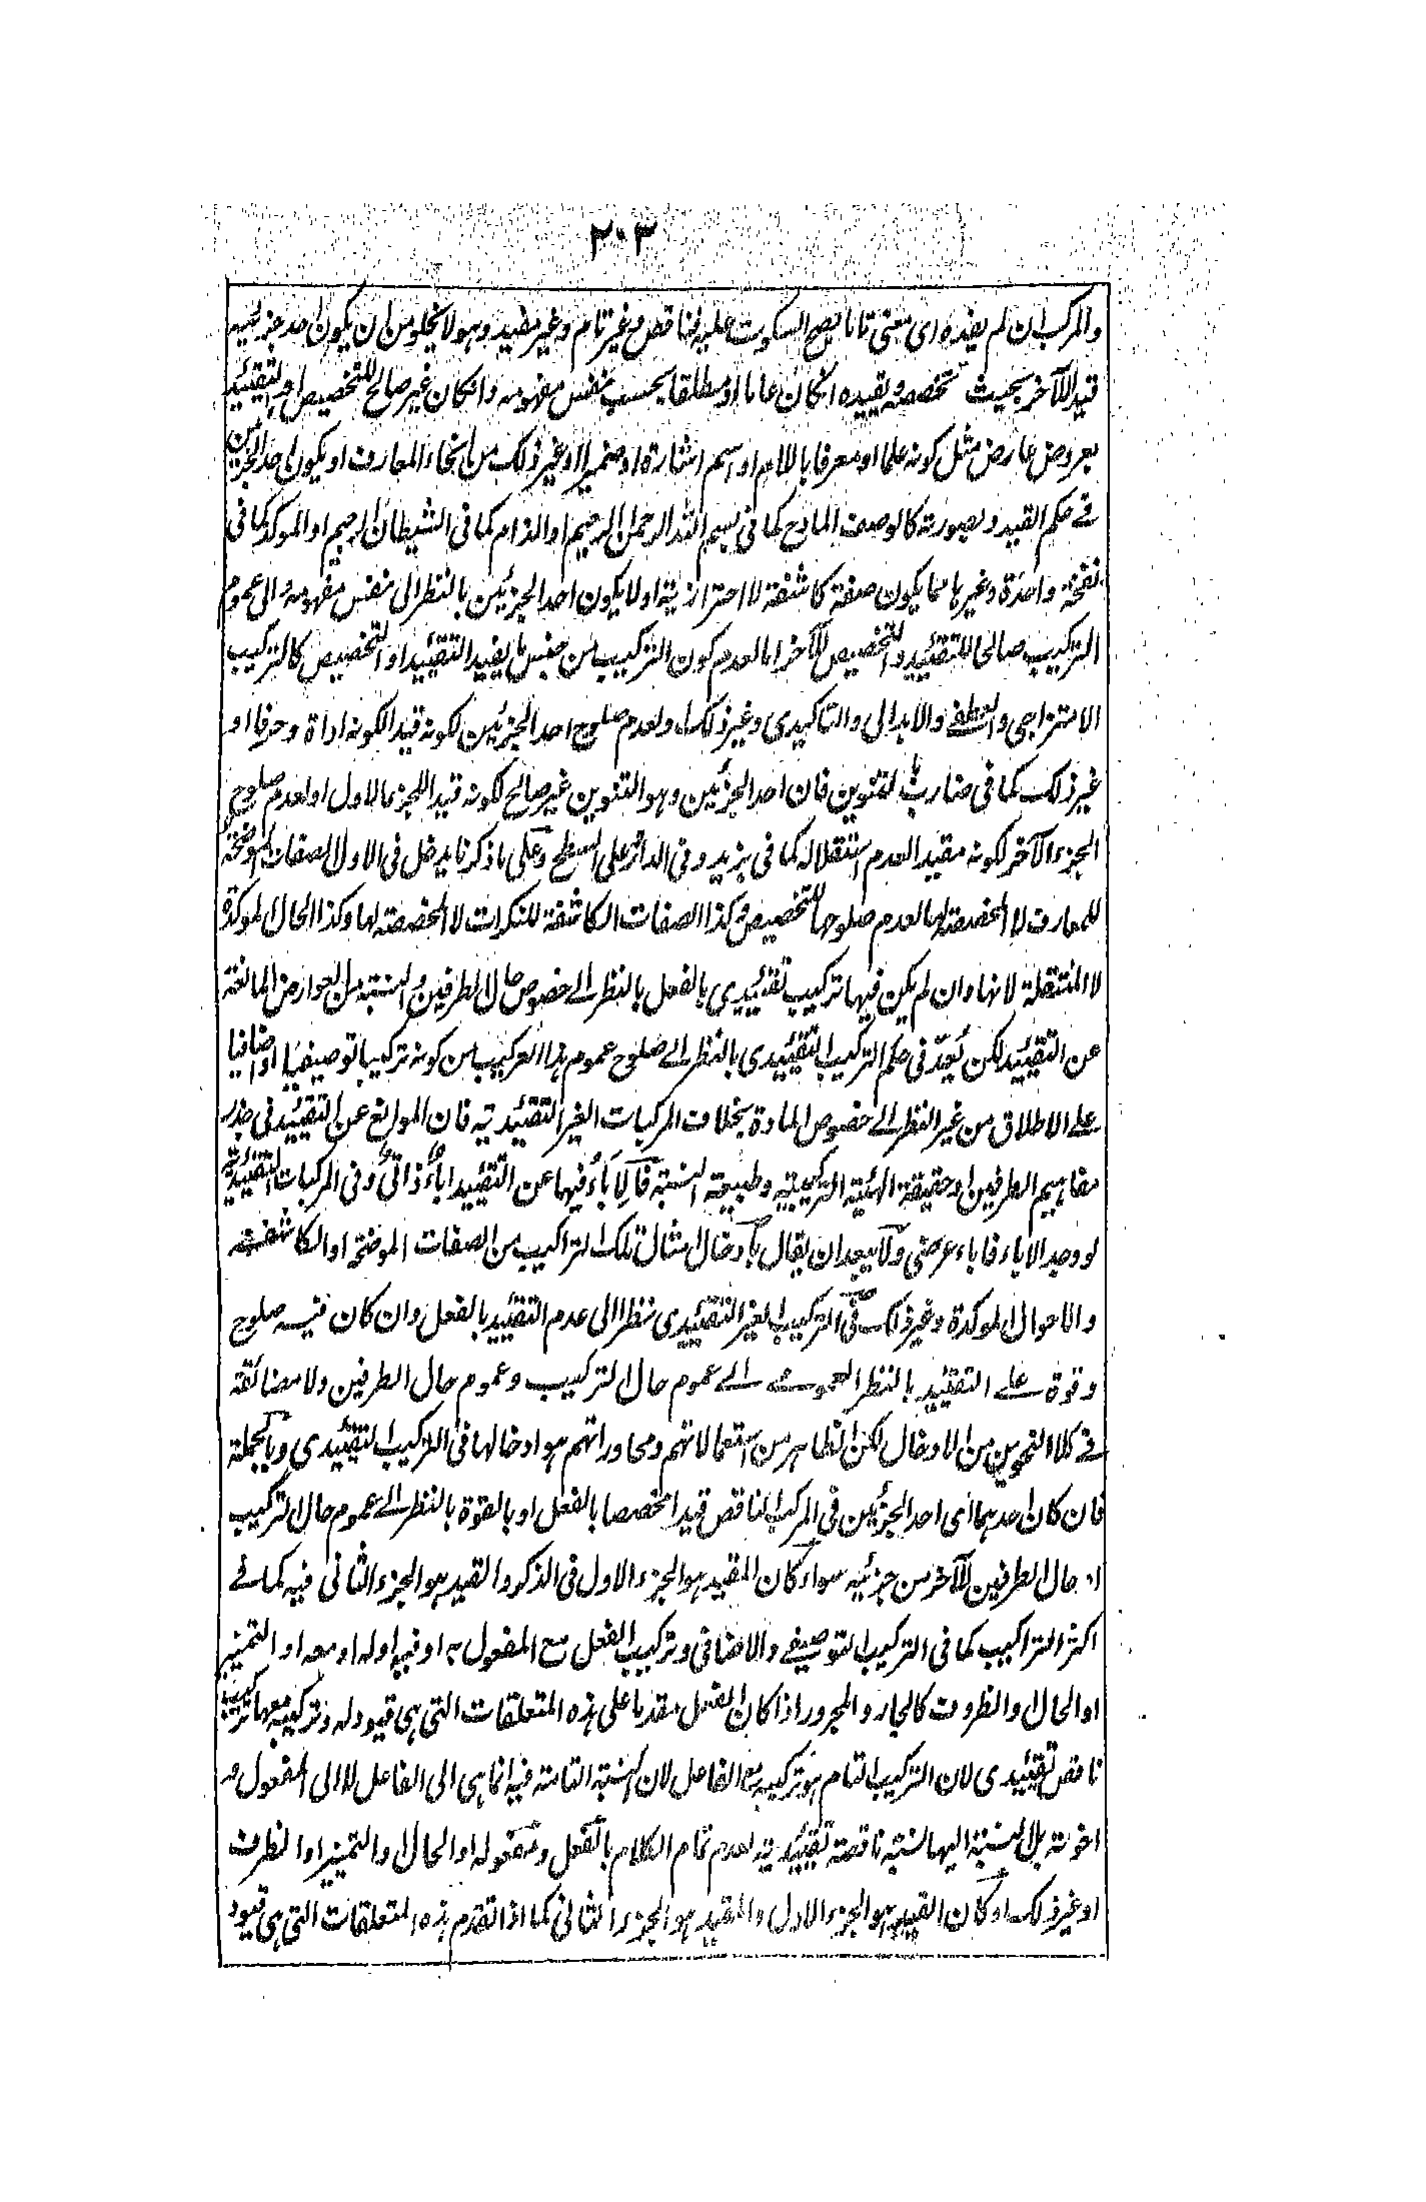 ٢٠٣
والمركب ان لم يفده اى معنى تاما يصح السكوت عليه فناقص وغير تام وغير مفيد وهو لا يخلو من ان يكون احد جزئيه
قيدا للآخر بحيث تخصصه وتقيده انكان عاما او مطلقا بحسب نفس مفهومه وانكان غير صالح للتخصيص او التقئيد
بعروض عارض مثل كونه علما او معرفا باللام او اسم اشارة او ضميرا او غير ذلك من انحاء المعارف او يكون احد الجزئين
فى حكم القيد وبصورته كالوصف المادح كما فى بسم الله الرحمن الرحيم او الذام كما فى الشيطان الرجيم او الموكد كما فى
نفخة واحدة وغيرها مما يكون صفة كاشفة لا احترازية او لا يكون احد الجزئين بالنظر الى نفس مفهومه والى عموم
التركيب صالحا للتقئيد والتخصيص للآخر اما لعدم كون التركيب من جنس ما يفيد التقئيد او التخصيص كالتركيب
الامتزاجى والعطفى والابدالى والتاكيدى وغير ذلك او لعدم صلوح احد الجزئين لكونه قيدا لكونه اداة وحرفا او
غير ذلك كما فى ضارب بالتنوين فان احد الجزئين وهو التنوين غير صالح لكونه قيدا للجزء الاول او لعدم صلوح
الجزء الآخر لكونه مقيدا لعدم استقلاله كما فى بزيد وفى الدار على السطح وعلى ما ذكرنا يدخل فى الاول الصفات الموضحة
للمعارف لا المخصصة لها لعدم صلوحها للتخصيص وكذا الصفات الكاشفة للنكرات لا المخصصة لها وكذا الحال الموكدة
لا المنتقلة لانها وان لم يكن فيها تركيب تقئيدى بالفعل بالنظر الى خصوص حال الطرفين والنسبة من العوارض المانعة
عن التقئيد لكن يُعدّ فى حكم التركيب التقئيدى بالنظر الى صلوح عموم هذا التركيب من كونه تركيبا توصيفيا او اضافيا
على الاطلاق من غير النظر الى خصوص المادة بخلاف المركبات الغير التقئيدية فان الموانع عن التقئيد فى جذر
مفاهيم الطرفين او حقيقة الهيئة التركيبية وطبيعة النسبة فالاباء فيها عن التقئيد اباء ذاتى وفى المركبات التقئيدية
لو وجد الاباء فاباء عرضى ولا يبعد ان يقال بادخال امثال تلك التراكيب من الصفات الموضحة او الكاشفة
والاحوال الموكدة وغير ذلك فى التركيب الغير التقئيدى نظرا الى عدم التقئيد بالفعل وان كان فيه صلوح
وقوة على التقئيد بالنظر العمومى الى عموم حال التركيب وعموم حال الطرفين ولا مضائقة
فى كلا النحوين من الادخال لكن الظاهر من استعمالاتهم ومحاوراتهم هو ادخالها فى التركيب التقئيدى وبالجملة
فان كان احدهما اى احد الجزئين فى المركب الناقص قيدا مخصصا بالفعل او بالقوة بالنظر الى عموم حال التركيب
او حال الطرفين للآخر من جزئيه سواء كان المقيد هو الجزء الاول فى الذكر والقيد هو الجزء الثانى فيه كما فى
اكثر التراكيب كما فى التركيب التوصيفى والاضافى وتركيب الفعل مع المفعول به او فيه او له او معه او التميز
او الحال والظروف كالجار والمجرور اذا كان الفعل مقدما على هذه المتعلقات التى هى قيود له وتركيبه معها تركيب
ناقص تقئيدى لان التركيب التام هو تركيبه مع الفاعل لان النسبة التامة فيه انما هى الى الفاعل لا الى المفعول و
اخوته بل النسبة اليها نسبة ناقصة تقئيدية لعدم تمام الكلام بالفعل ومفعوله او الحال والتميز او الظرف
او غير ذلك او كان القيد هو الجزء الاول والمقيد هو الجزء الثانى كما اذا تقدم هذه المتعلقات التى هى قيود